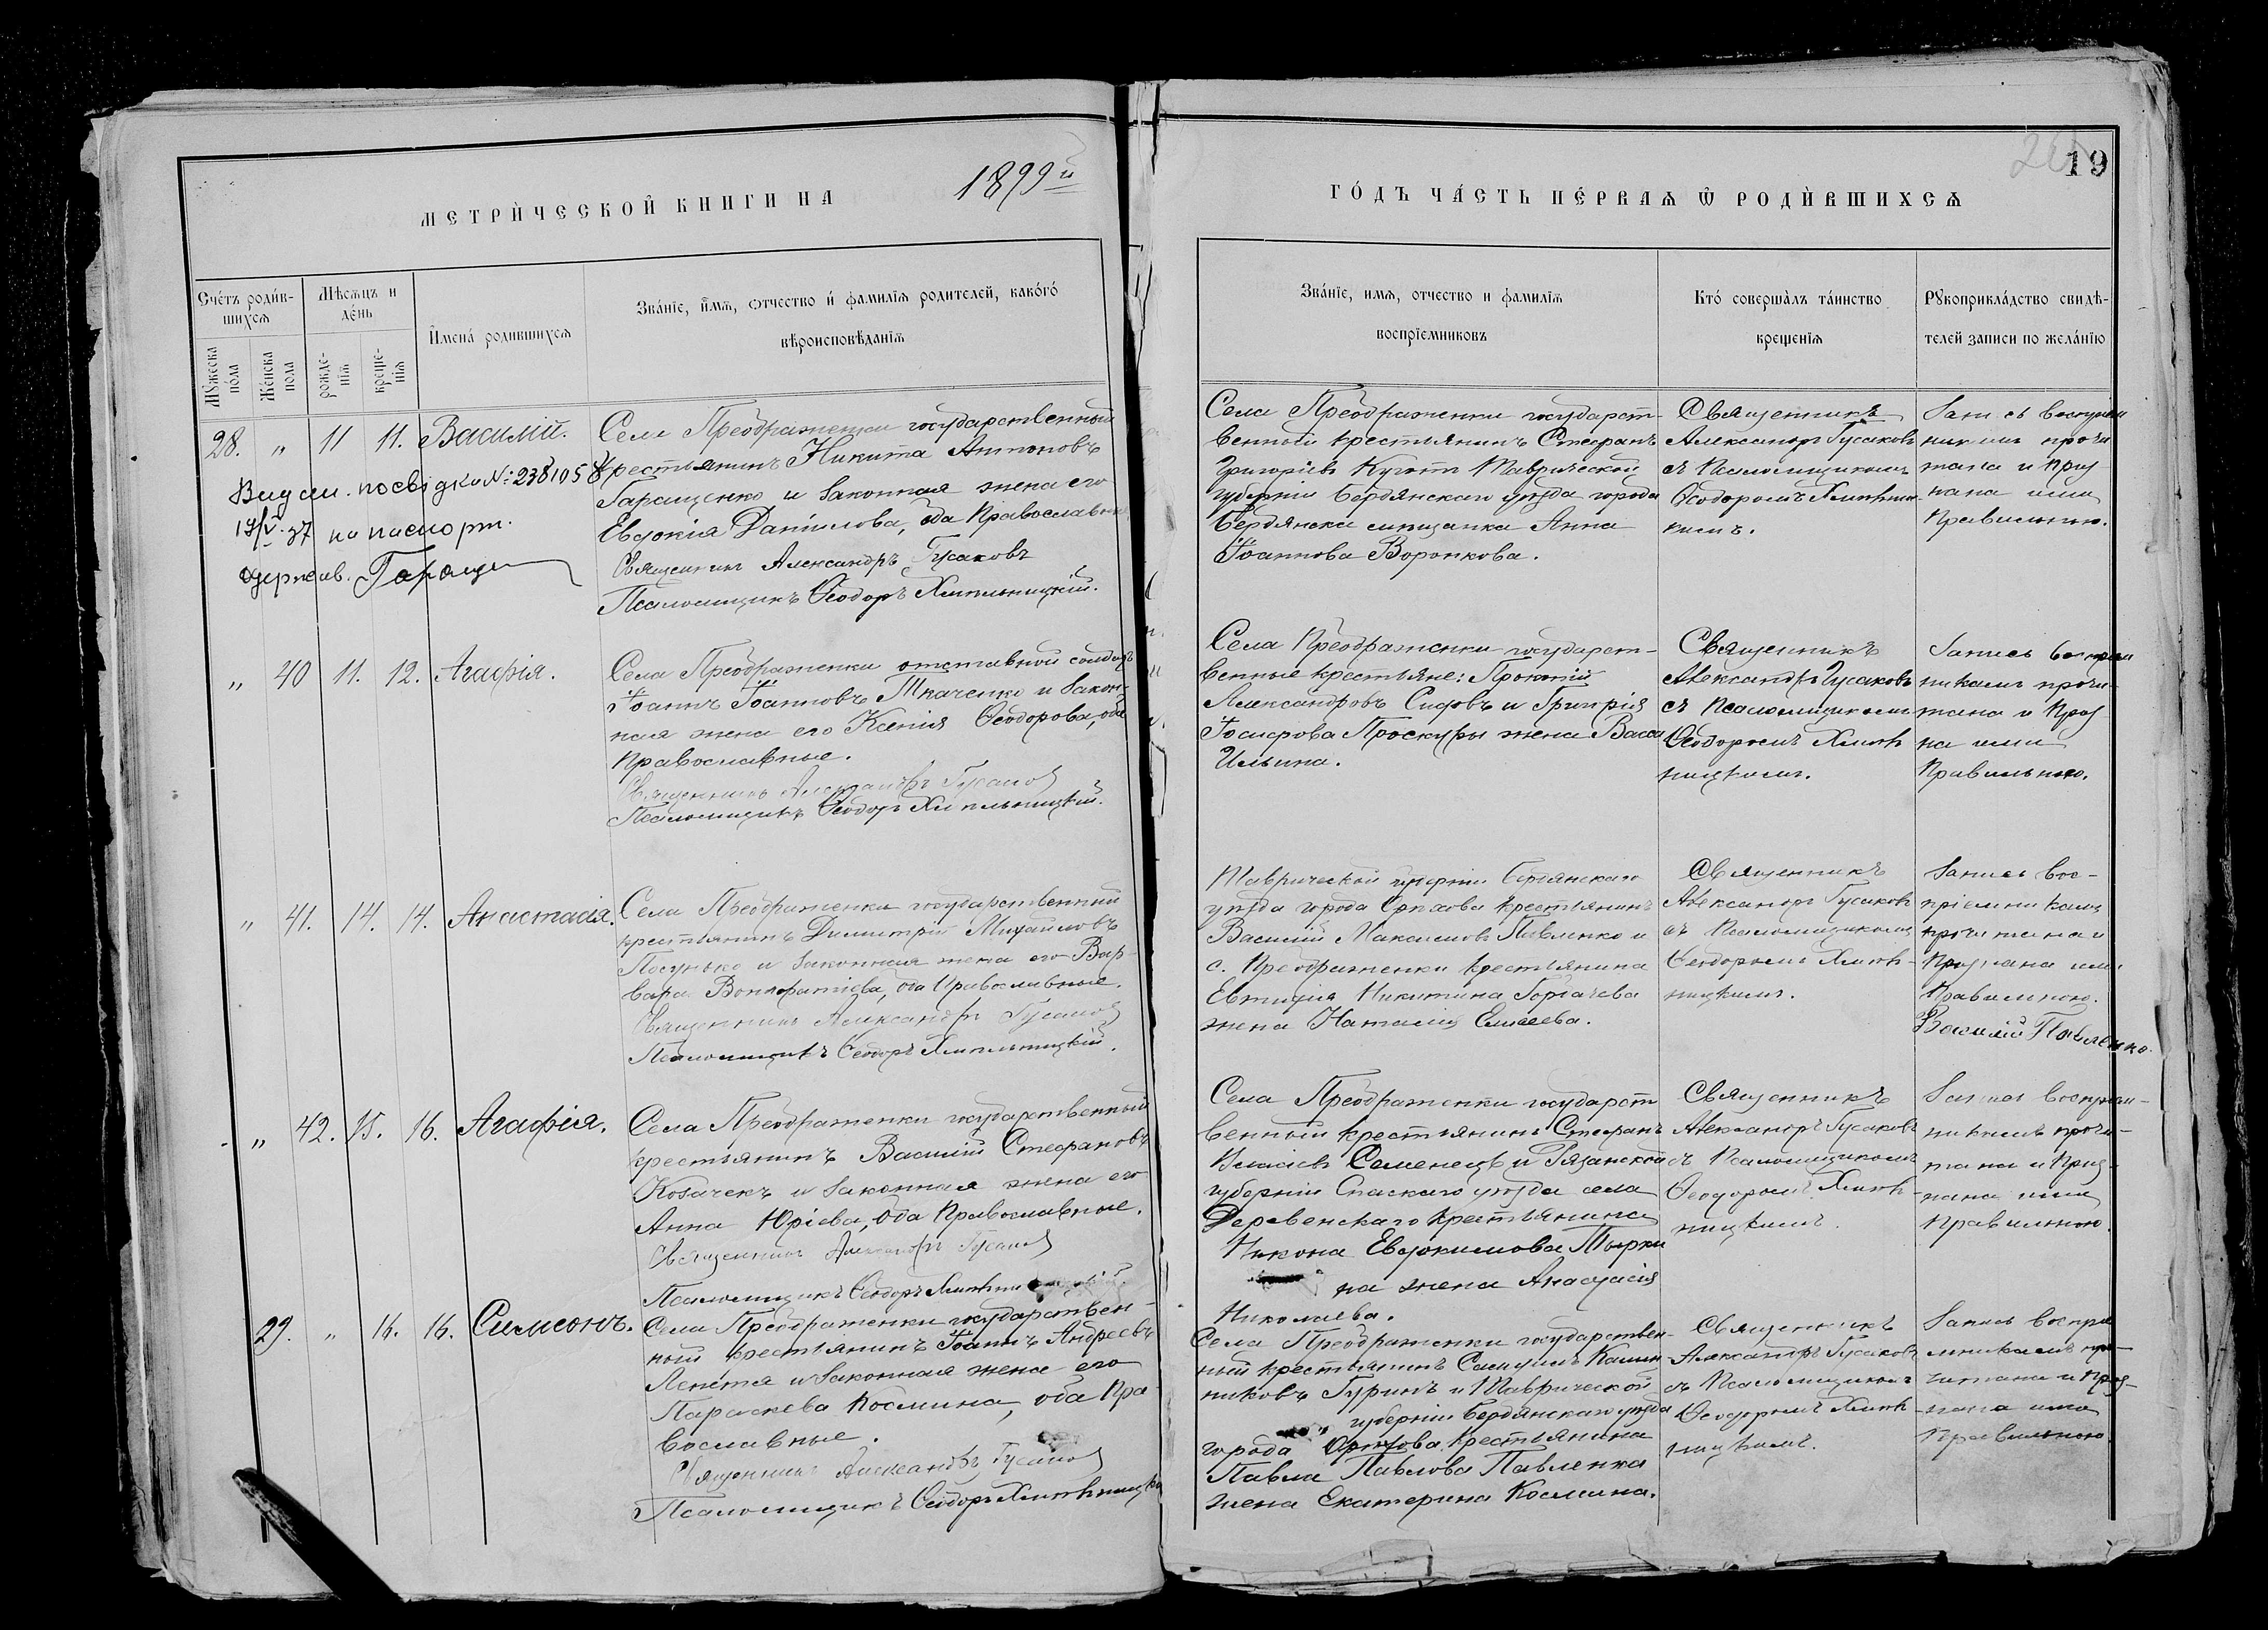 МЕТРИ́ЧЕСКОЙ КНИГИ НА
1899й
ГО́ДЪ ЧА́СТЬ ПЕ́РВАѦ Ѿ РОДИ́ВШИХСѦ
19
Счётъ роди́в-
шихсѧ
Мѣсѧцъ и
де́нь
Мꙋжеска
по́ла
Же́нска
пола
рожде-
нїѧ
креще-
нїѧ
И҆мена́ родившихсѧ
Зва́нїе, и҆мѧ, ѻтчество и҆ фамилїѧ родителей, како́гѡ
вѣроисповѣданїѧ
Зва́нїе, имѧ, отчество и фамилїѧ
воспрїемниковъ
Кто́ соверша̀лъ та́инство
крещенїѧ
Рꙋкоприкла́дство свидѣ-
телей записи по жела́нїю
28. „ 11 11. Василій.
Села Преображенки государственный
крестьянинъ Никита Антоновъ
Гаращенко и законная жена его
Евдокія Даніилова, оба православные
Священникъ Александръ Гусаковъ
Псаломщикъ Ѳеодоръ Хмельницкій.
Видан. посвідку №: 238105
37 на паспорт.
Села Преображенки государст-
венный крестьянинъ Стефанъ
Григоріевъ и Таврической
губерніи Бердянскаго уѣзда города
Бердянска мѣщанка Анна
Іоаннова Воронкова.
Священникъ
Александръ Гусаковъ
съ Псаломщикомъ
Ѳеодоромъ Хмельниц-
кимъ.
Запись воспріем-
никамъ прочи-
тана и приз-
нана ими
правильною.
„ 40 11. 12. Агафія.
Села Преображенки отставной солдатъ
Іоаннъ Іоанновъ Ткаченко и закон-
ная жена его Ксенія Ѳеодорова, оба
православные.
Священникъ Александръ Гусаковъ
Псаломщикъ Ѳеодоръ Хмельницкій.
Села Преображенки государст-
венные крестьяне: Прокопій
Александровъ и Григорія
Іосифова Проскуры жена Васса
Ильина.
Священникъ
Александръ Гусаковъ
съ Псаломщикомъ
Ѳеодоромъ Хмель-
ницкимъ.
Запись воспріем-
никамъ прочи-
тана и приз-
на ими
правильною.
„ 41. 14. 14. Анастасія.
Села Преображенки государственный
крестьянинъ Димитрій Михайловъ
и законная жена его Вар-
вара Вонифатіева, оба православные.
Священникъ Александръ Гусаковъ
Псаломщикъ Ѳеодоръ Хмельницкій.
Таврической губерніи Бердянскаго
уѣзда города Орѣхова крестьянинъ
Василій Максимовъ Павленко и
с. Преображенки крестьянина
Евтихія Никитина Горбачева
жена Наталія Елисеева.
Священникъ
Александръ Гусаковъ
съ Псаломщикомъ
Ѳеодоромъ Хмель-
ницкимъ.
Запись вос-
пріемникамъ
прочитана и
признана ими
правильною.
Василій Павленко.
„ 42. 15. 16. Агафія.
Села Преображенки государственный
крестьянинъ Василій Стефановъ
Козачекъ и законная жена его
Анна Юріева, оба православные.
Священникъ Александръ Гусаковъ
Псаломщикъ Ѳеодоръ
Села Преображенки государст
венный крестьянинъ Стефанъ
Семенецъ и Рязанской
губерніи Спаскаго уѣзда села
Деревенскаго крестьянина
Никона Евдокимова Тырки
на жена Анастасія
Николаева.
Священникъ
Александръ Гусаковъ
съ Псаломщикомъ
Ѳеодоромъ Хмель-
ницкимъ.
Запись воспріем-
никамъ прочи-
тана и приз-
нана ими
правильною.
29. „ 16. 16. Симеонъ.
Села Преображенки государствен-
ный крестьянинъ Іоаннъ Андреевъ
Лепетя и законная жена его
Параскева Космина, оба пра-
вославные.
Священникъ Александръ Гусаковъ
Псаломщикъ Ѳеодоръ Хмельницкій
Села Преображенки государствен-
ный крестьянинъ Самуилъ Калин-
никовъ Гуринъ и Таврической
губерніи Бердянскаго уѣзда
города Орѣхова крестьянина
Павла Павлова Павленка
жена Екатерина Космина.
Священникъ
Александръ Гусаковъ
съ Псаломщикомъ
Ѳеодоромъ Хмель-
ницкимъ.
Запись воспріе
мникамъ про-
читана и приз-
нана ими
правильною.